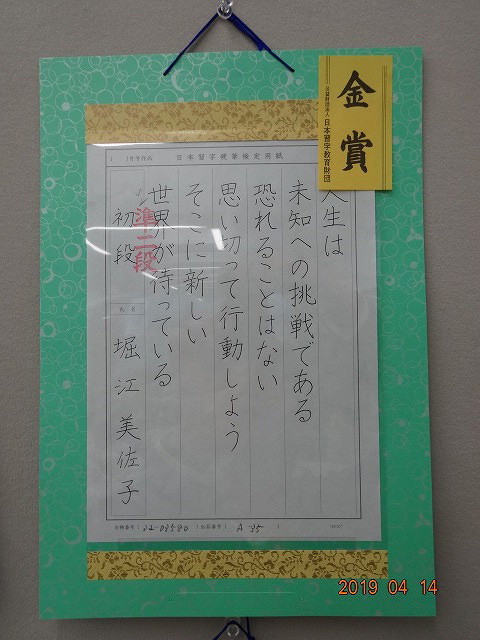 金賞
公益財団法人 日本習字教育財団
日本習字硬筆検定用紙
人生は
未知への挑戦である
恐れることはない
思い切って行動しよう
そこに新しい
世界が待っている
準二段
初段
氏名
堀江美佐子
A-35
2019 04 14